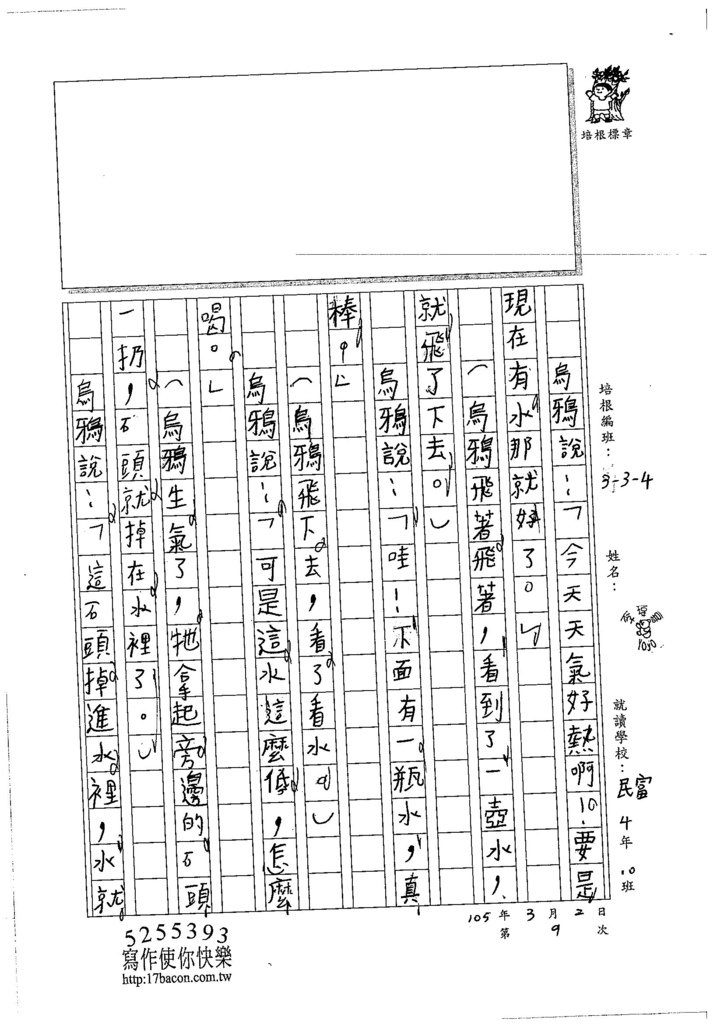 培根標章
培根編班：3-3-4
姓名：
就讀學校：民富 4年 10班
105年3月2日
第9次
烏鴉說：「今天天氣好熱啊！要是
現在有水那就好了。」
（烏鴉飛著飛著，看到了一壺水，
就飛了下去。）
烏鴉說：「哇！下面有一瓶水，真
棒。」
（烏鴉飛下去，看了看水。）
烏鴉說：「可是這水這麼低，怎麼
喝。」
（烏鴉生氣了，牠拿起旁邊的石頭
一扔，石頭就掉在水裡了。）
烏鴉說：「這石頭掉進水裡，水就
5255393
寫作使你快樂
http:17bacon.com.tw